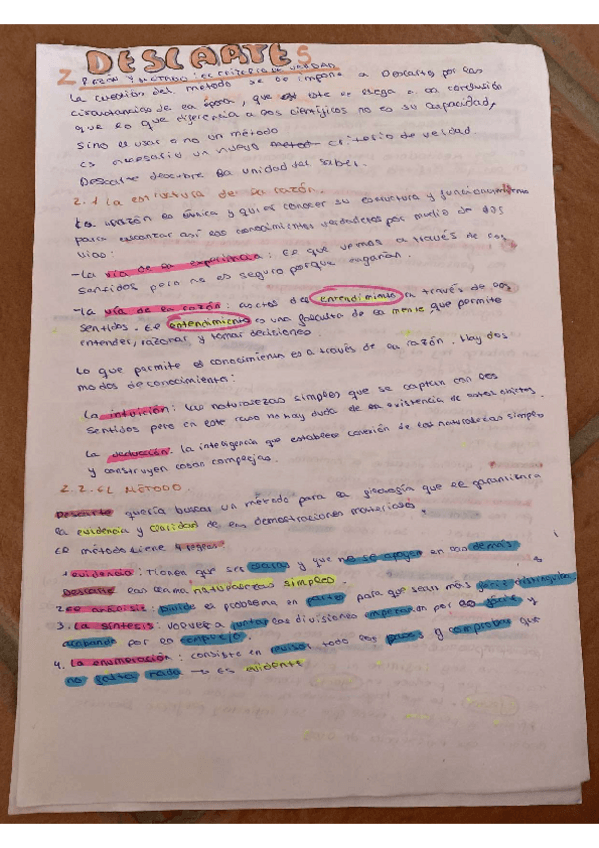 DESCARTES
2. RAZÓN Y MÉTODO: CRITERIO DE VERDAD
La cuestión del método se le impone a Descartes por las
circunstancias de la época, que este se llega a la conclusión
que lo que diferencia a los científicos no es su capacidad,
sino el usar o no un método
Es necesario un nuevo criterio de verdad.
Descarte descubre la unidad del saber.
2.1 La estructura de la razón.
La razón es única y quiere conocer su estructura y funcionamiento
para alcanzar así los conocimientos verdaderos por medio de dos
vías:
-La vía de la experiencia: Lo que vemos a través de los
sentidos pero no es seguro porque engañan.
-La vía de la razón: actos del entendimiento a través de los
sentidos. El entendimiento es una facultad de la mente que permite
entender, razonar y tomar decisiones.
Lo que permite el conocimiento es a través de la razón. Hay dos
modos de conocimiento:
La intuición: Las naturalezas simples que se captan con los
sentidos pero en este caso no hay duda de la existencia de estos objetos.
La deducción: la inteligencia que establece conexión de las naturalezas simples
y construyen cosas complejas.
2.2. EL MÉTODO.
Descarte quería buscar un método para la filosofía que le garantizara
la evidencia y claridad de las demostraciones
El método tiene 4 reglas:
1 evidencia: Tienen que ser claras y que no se apoyen en las demás
Descarte las llama naturalezas simples.
2. el análisis: Divide el problema en partes para que sean más fácil distinguirla
3. La síntesis: volver a juntar las divisiones empezando por lo fácil y
acabando por lo complejo.
4. La enumeración: consiste en revisar todos los pasos y comprobar que
no falta nada → es evidente